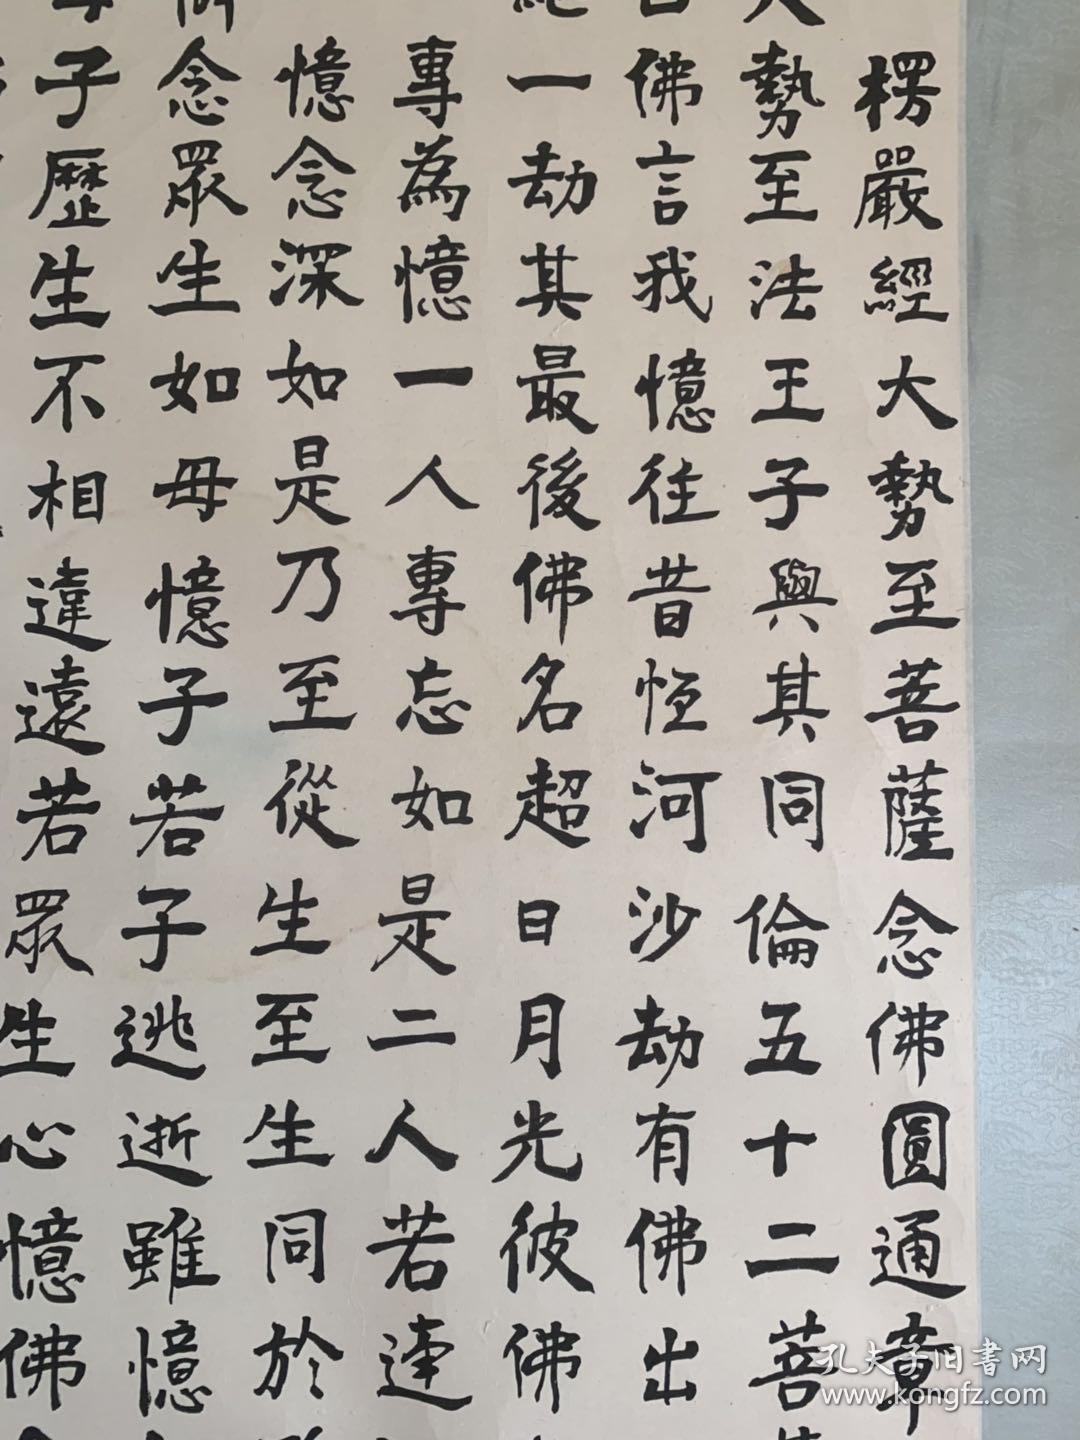 楞嚴經大勢至菩薩念佛圓通章
勢至法王子與其同倫五十二菩
佛言我憶往昔恆河沙劫有佛出
一劫其最後佛名超日月光彼佛
專為憶一人專忘如是二人若逢
憶念深如是乃至從生至生同於
念眾生如母憶子若子逃逝雖憶
子歷生不相違遠若眾生心憶佛
孔夫子旧書网
www.kongfz.com